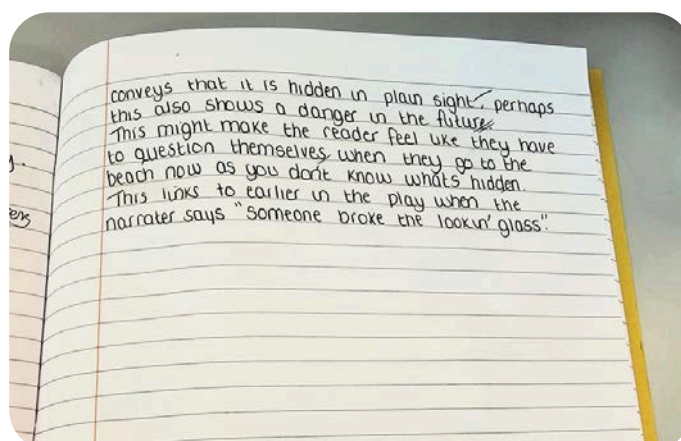 conveys that it is hidden in plain sight, perhaps
this also shows a danger in the future.
This might make the reader feel like they have
to question themselves when they go to the
beach now as you don't know whats hidden.
This links to earlier in the play when the
narrater says "Someone broke the lookin' glass".